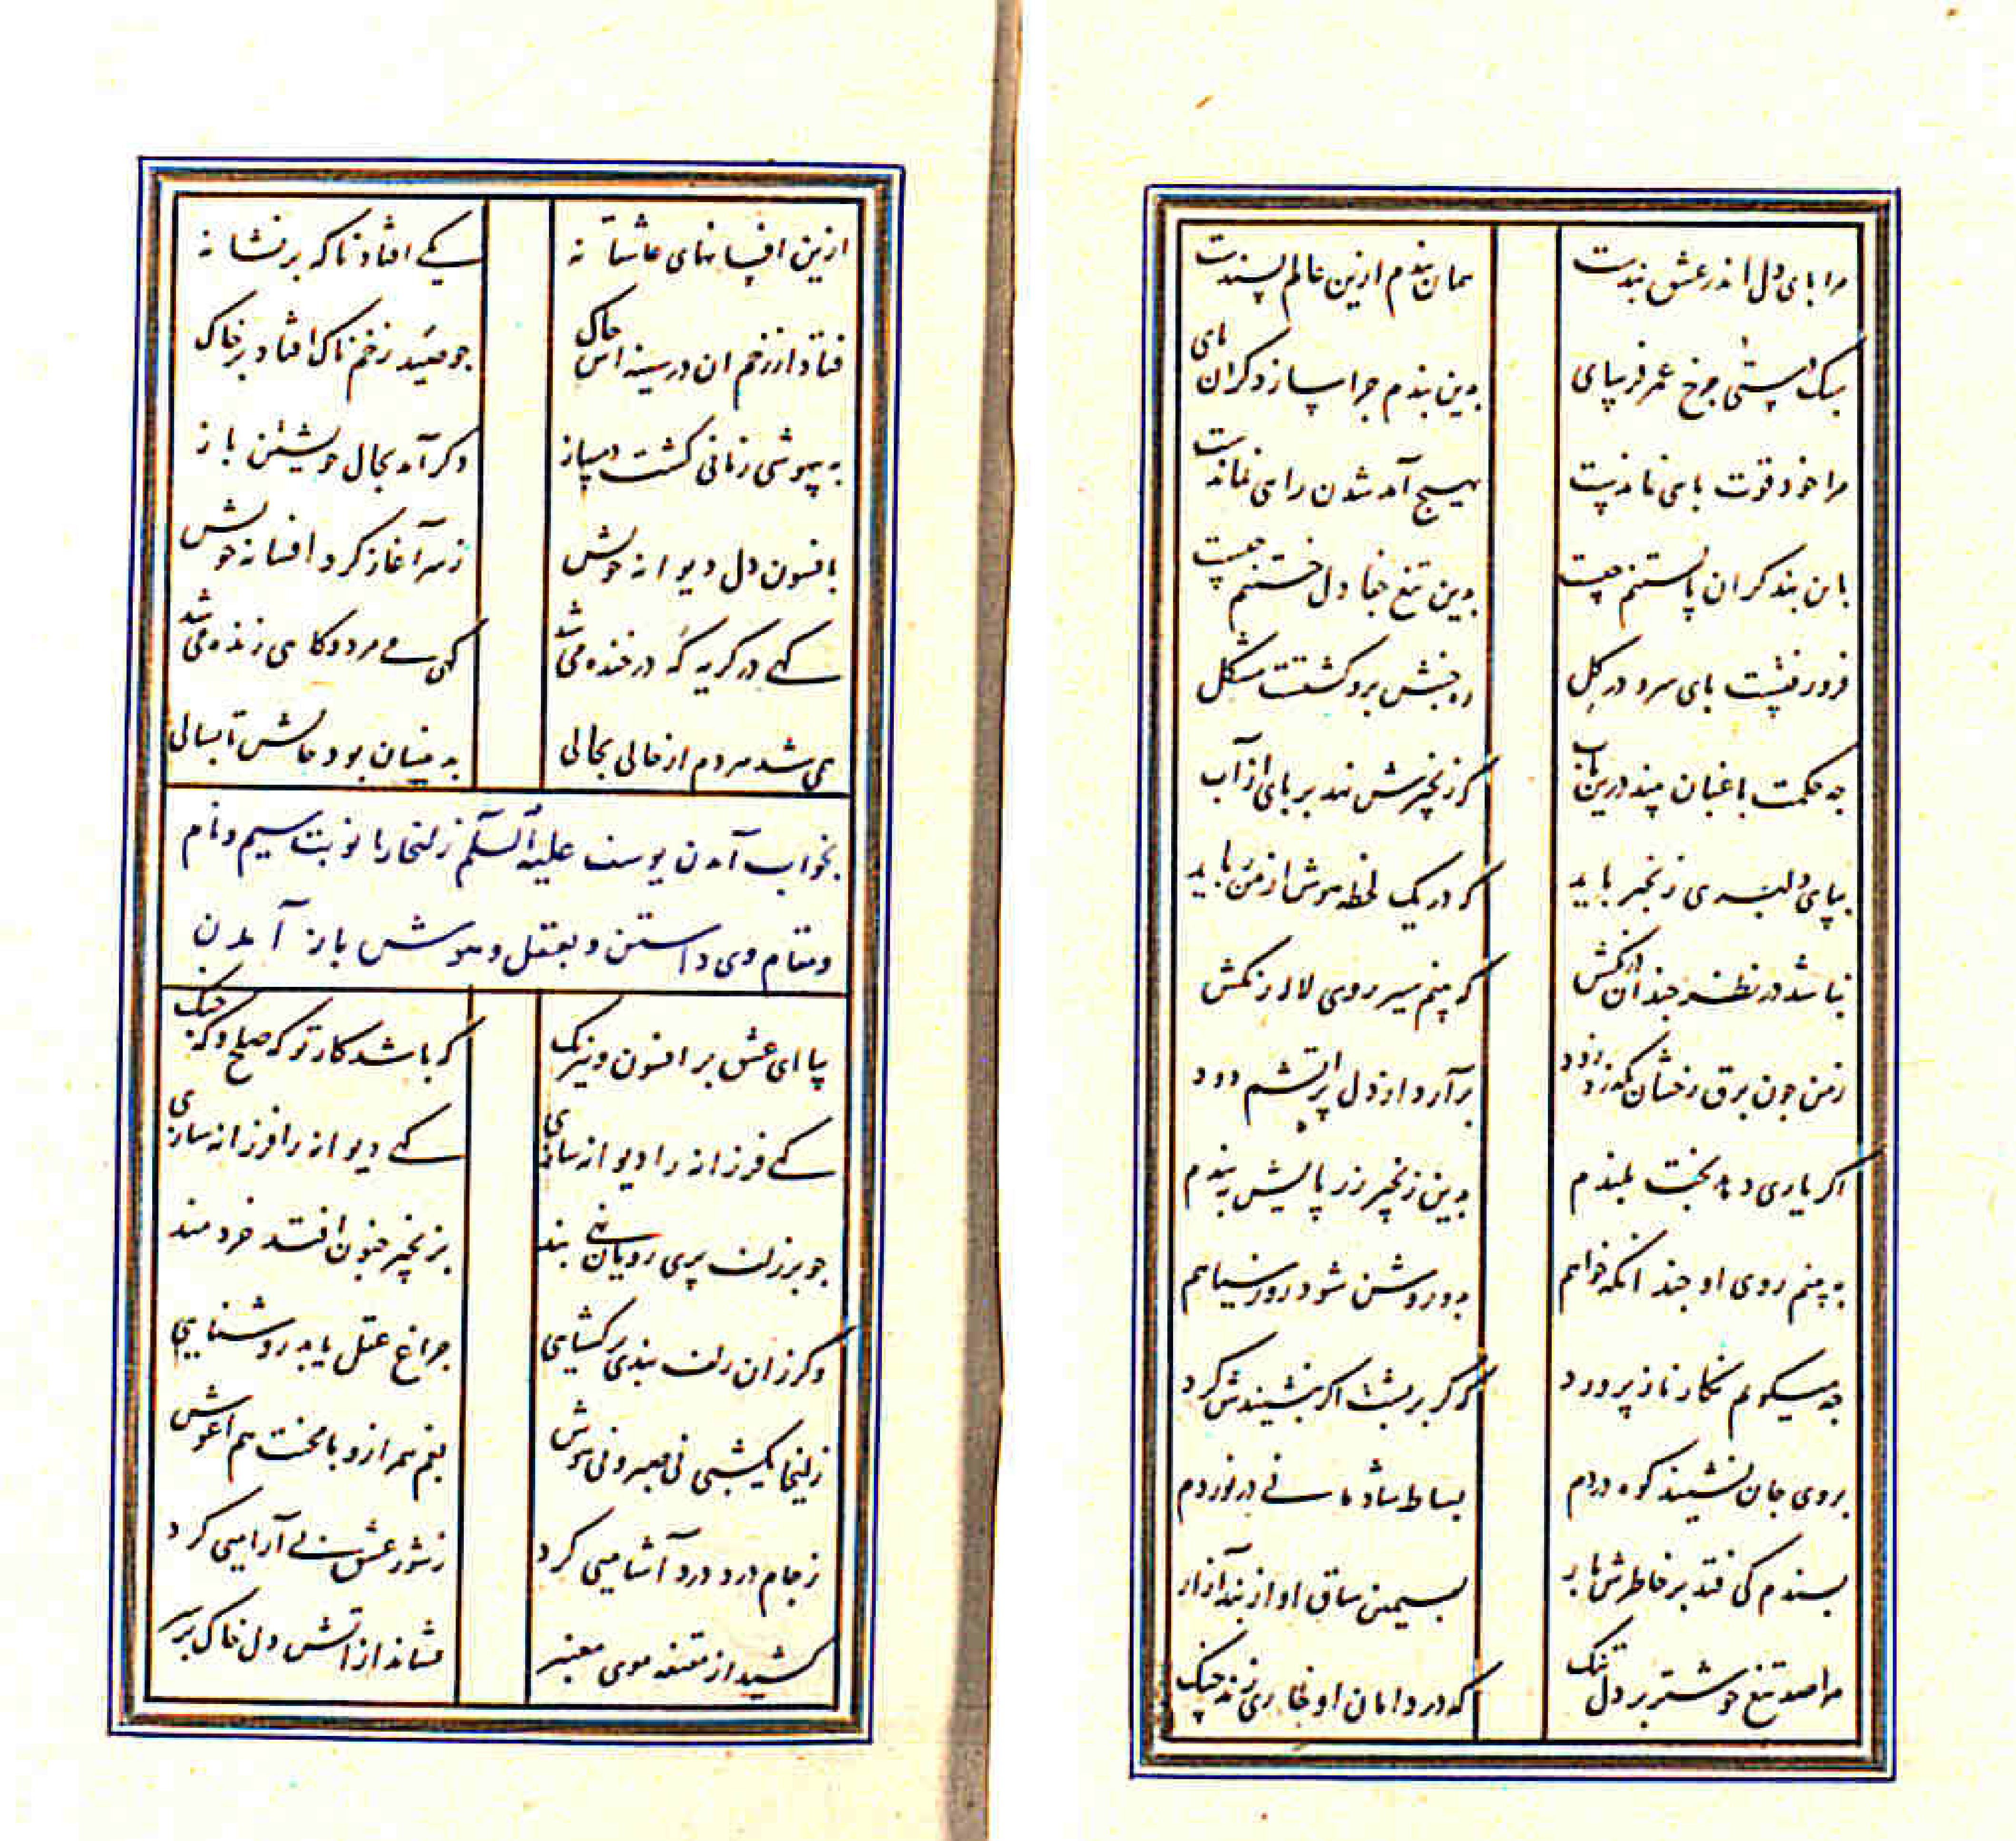 مرا پای دل اندر عشق بندست
همان بندم ازین عالم پسندست
سبک دستی چرخ عمر فرسای
بدین بندم چرا سازد گران پای
مرا خود قوت پایی نماندست
بهیچ آمد شدن رایی نماندست
باین بند گران پا بستنم چیست
بدین تیغ جفا دل خستنم چیست
فرو رفتست پای سرو در گل
ره جنبش برو گشتست مشکل
چه حکمت باغبان بیند درین باب
که زنجیرش نهد بر پای از آب
بپای دلبری زنجیر باید
که در یک لحظه هوش از من رباید
نباشد در نظر چندان درنگش
که بینم سیر روی لاله رنگش
ز من چون برق رخشان بگذرد زود
برآرد از دل پر آتشم دود
اگر یاری دهد بخت بلندم
بدین زنجیر زر پایش ببندم
ببینم روی او چندانکه خواهم
بدو روشن شود روز سیاهم
چه میگویم نگار ناز پرورد
که گر بر پشت پا بنشیندش گرد
بروی جان نشیند کوه دردم
بساط شادمانی در نوردم
پسندم کی فتد بر خاطرش بار
بسیمین ساق او از بند آزار
مرا صد تیغ خوشتر بر دل تنگ
که در دامان او خاری زند چنگ
ازین افسانهای عاشقانه
یکی افتاد ناگه بر نشانه
فتاد از زخم آن در سینه اش چاک
چو صید زخمناک افتاد بر خاک
به بیهوشی زمانی گشت دمساز
دگر آمد بحال خویشتن باز
بافسون دل دیوانه خویش
ز سر آغاز کرد افسانه خویش
گهی در گریه گه در خنده می شد
گهی می مرد و گاهی زنده می شد
همی شد هر دم از حالی بحالی
بدینسان بود حالش تا بسالی
بخواب آمدن یوسف علیه السلم زلیخا را نوبت سیم و نام
و مقام وی دانستن و بعقل و هوش باز آمدن
بیا ای عشق پر افسون و نیرنگ
که باشد کار تو گه صلح و گه جنگ
گهی فرزانه را دیوانه سازی
گهی دیوانه را فرزانه سازی
چو بر زلف پری رویان نهی بند
بزنجیر جنون افتد خردمند
وگر زان زلف بندی برگشایی
چراغ عقل یابد روشنایی
زلیخا یکشبی نی صبر و نی هوش
بغم همراز و با محنت هم آغوش
ز جام درد درد آشامیی کرد
ز شور عشق بی آرامیی کرد
کشید از مقنعه موی معنبر
فشاند از آتش دل خاک بر سر